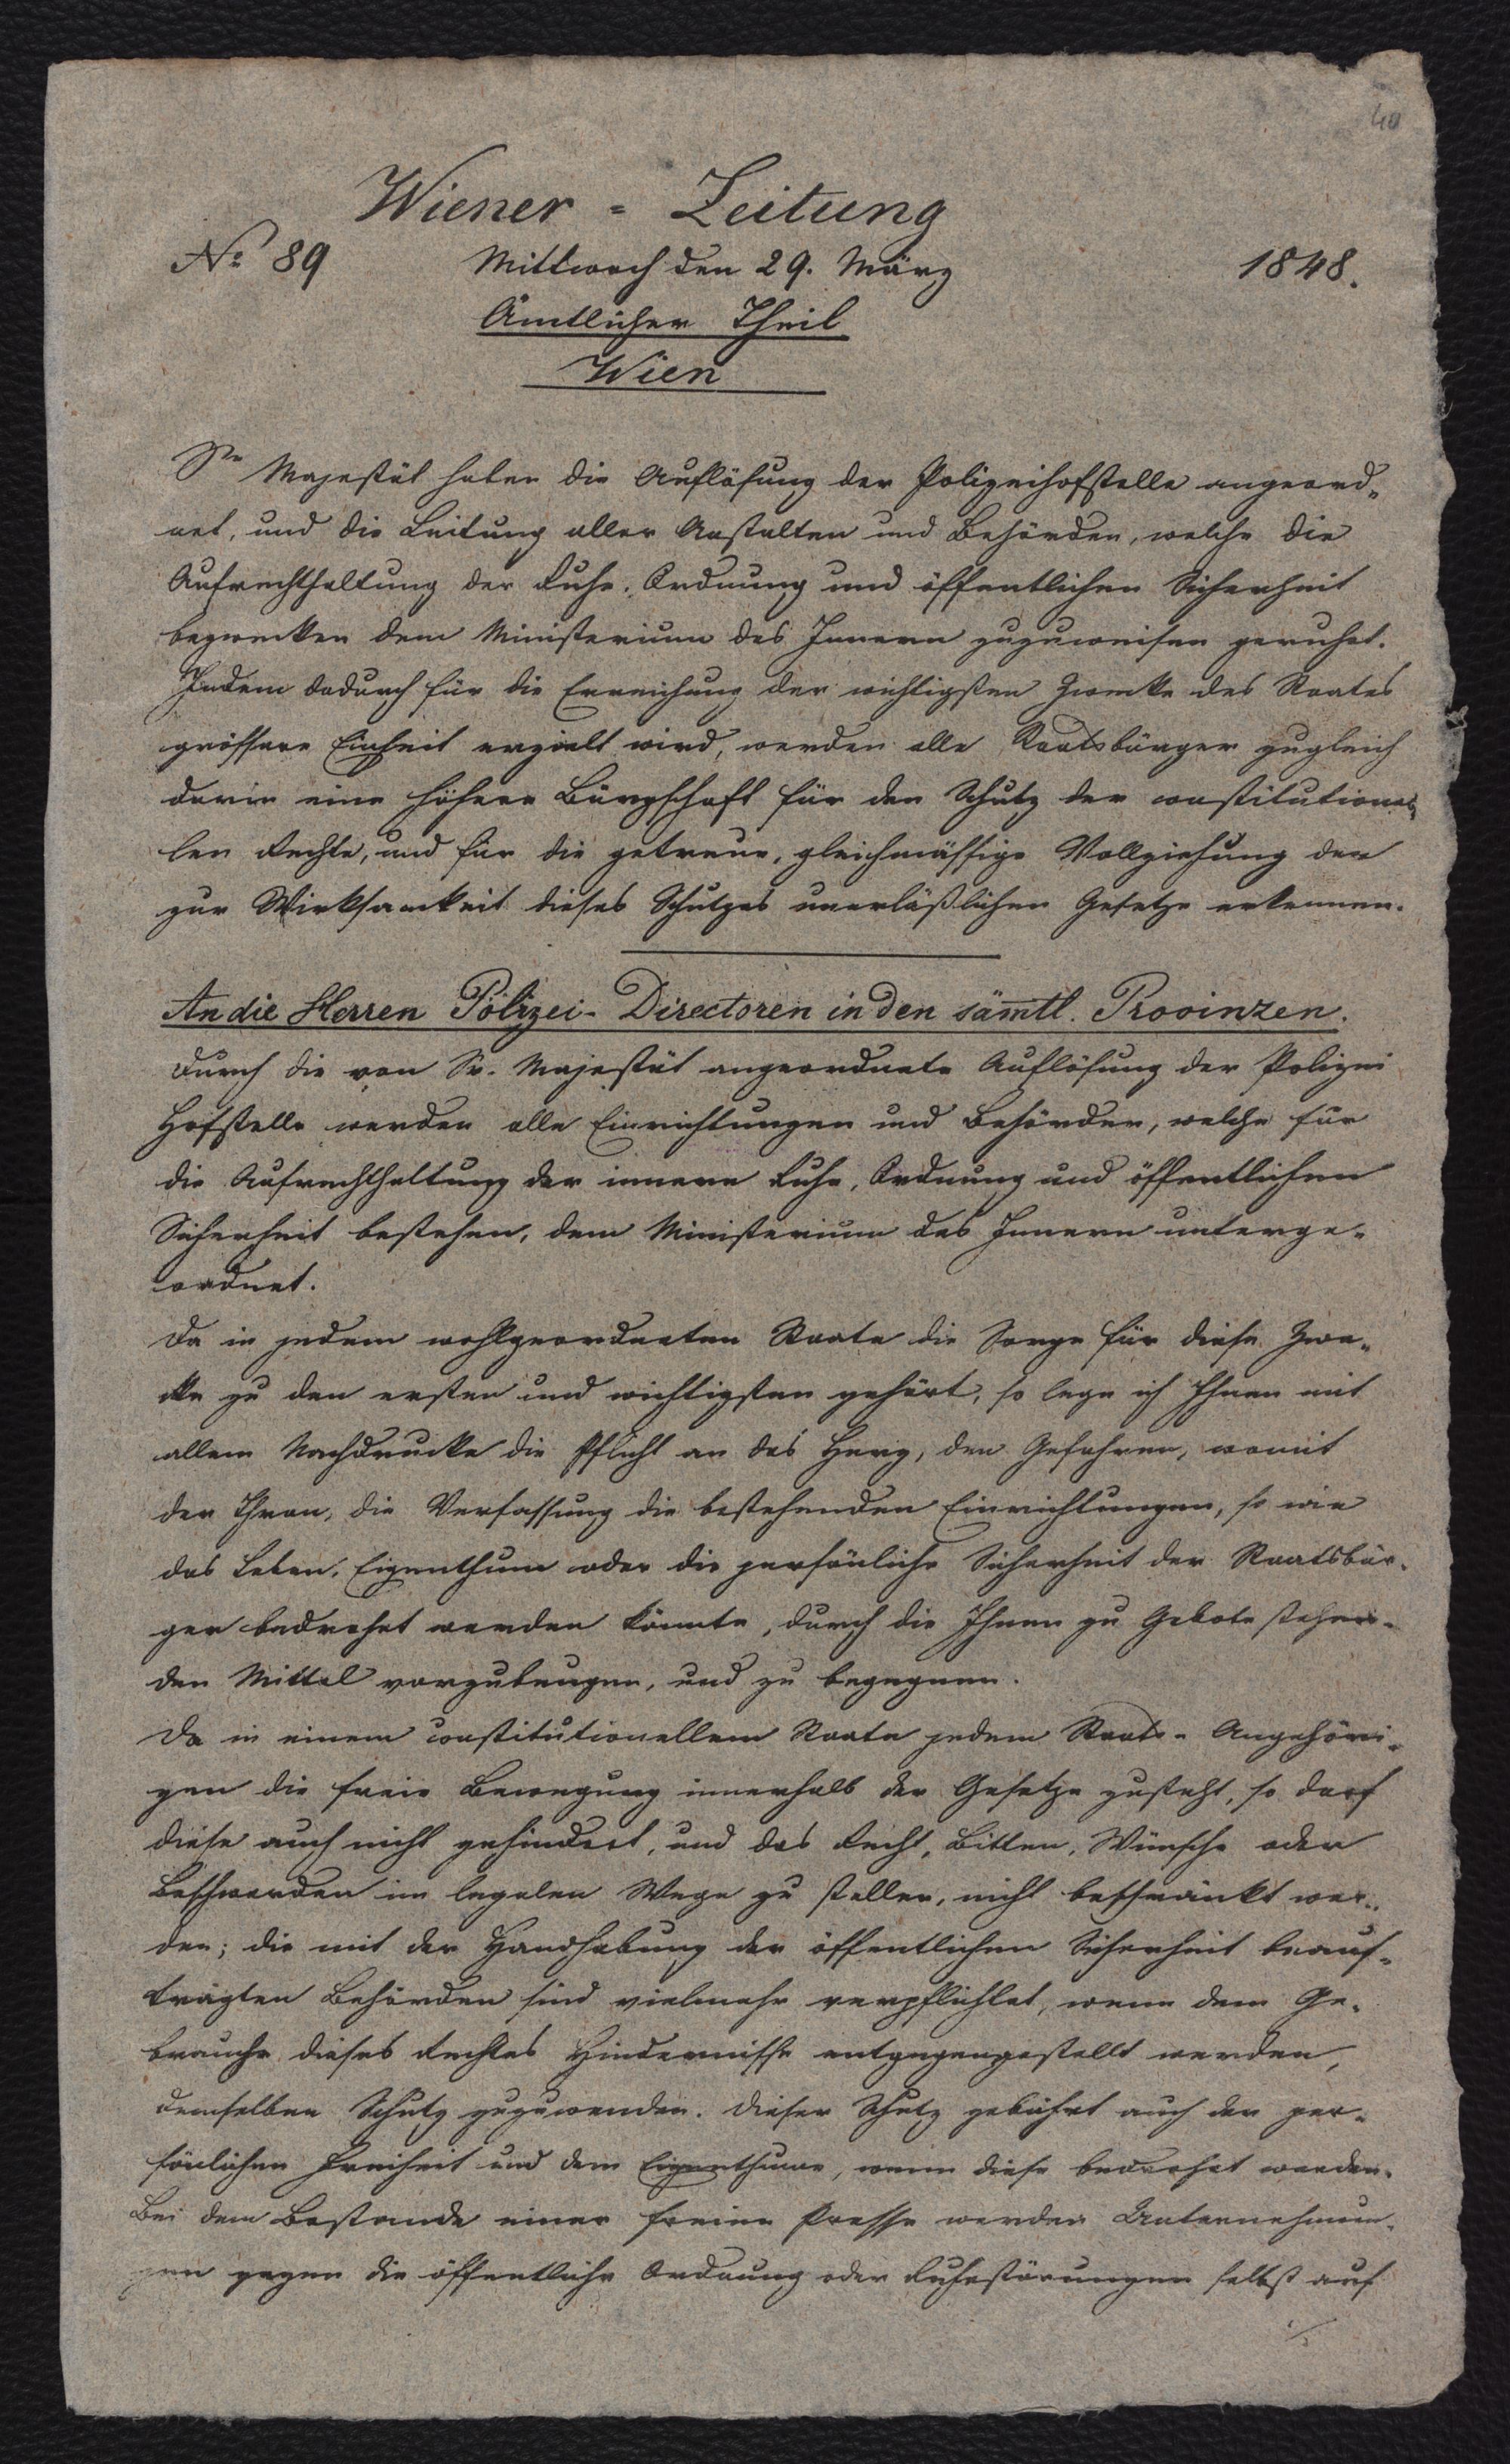 40
Wiener = Zeitung
No 89 Mittwoch den 29. März 1848.
Ämtlicher Theil
Wien
Se Majestät haben die Auflösung der Polizeihofstelle angeord=
net, und die Leitung aller Anstalten und Behörden, welche die
Aufrechthaltung der Ruhe, Ordnung und öffentlichen Sicherheit
bezwecken dem Ministerium des Innern zuzuweisen geruhet.
Indem dadurch für die Erreichung der wichtigsten Zwecke des Staates
grössere Einheit erzielt wird, werden alle Staatsbürger zugleich
darin eine höhere Bürgschaft für den Schutz der constitutionel=
len Rechte, und für die getreue, gleichmässige Vollziehung der
zur Wirksamkeit dieses Schutzes unerläßlichen Gesetze erkennen.
An die Herren Polizei-Directoren in den sämtl. Provinzen.
Durch die von Sr. Majestät angeordnete Auflösung der Polizei
Hofstelle werden alle Einrichtungen und Behörden, welche für
die Aufrechthaltung der innern Ruhe, Ordnung und öffentlichen
Sicherheit bestehen, dem Ministerium des Innern unterge=
ordnet.
Da in jedem wohlgeordneten Staate die Sorge für diese Zwe=
cke zu den ersten und wichtigsten gehört, so lege ich Ihnen mit
allem Nachdrucke die Pflicht an das Herz, den Gefahren, womit
der Thron, die Verfassung die bestehenden Einrichtungen, so wie
das Leben, Eigenthum oder die persönliche Sicherheit der Staatsbür=
ger bedrohet werden könnte, durch die Ihnen zu Gebote stehen=
den Mittel vorzubeugen, und zu begegnen.
Da in einem constitutionellem Staate jedem Staats-Angehöri=
gen die freie Bewegung innerhalb der Gesetze zusteht, so darf
diese auch nicht gehindert, und das Recht, Bitten, Wünsche oder
Beschwerden im legalen Wege zu stellen, nicht beschränkt wer=
den; die mit der Handhabung der öffentlichen Sicherheit beauf=
trägten Behörden sind vielmehr verpflichtet, wenn dem Ge=
brauche dieses Rechtes Hindernisse entgegengestellt werden,
demselben Schutz zuzuwenden. Dieser Schutz gebührt auch der per=
sönlichen Freiheit und dem Eigenthume, wenn diese bedrohet werden.
Bei dem Bestande einer freien Presse werden Unternehmun=
gen gegen die öffentliche Ordnung oder Ruhestörungen selbst auf